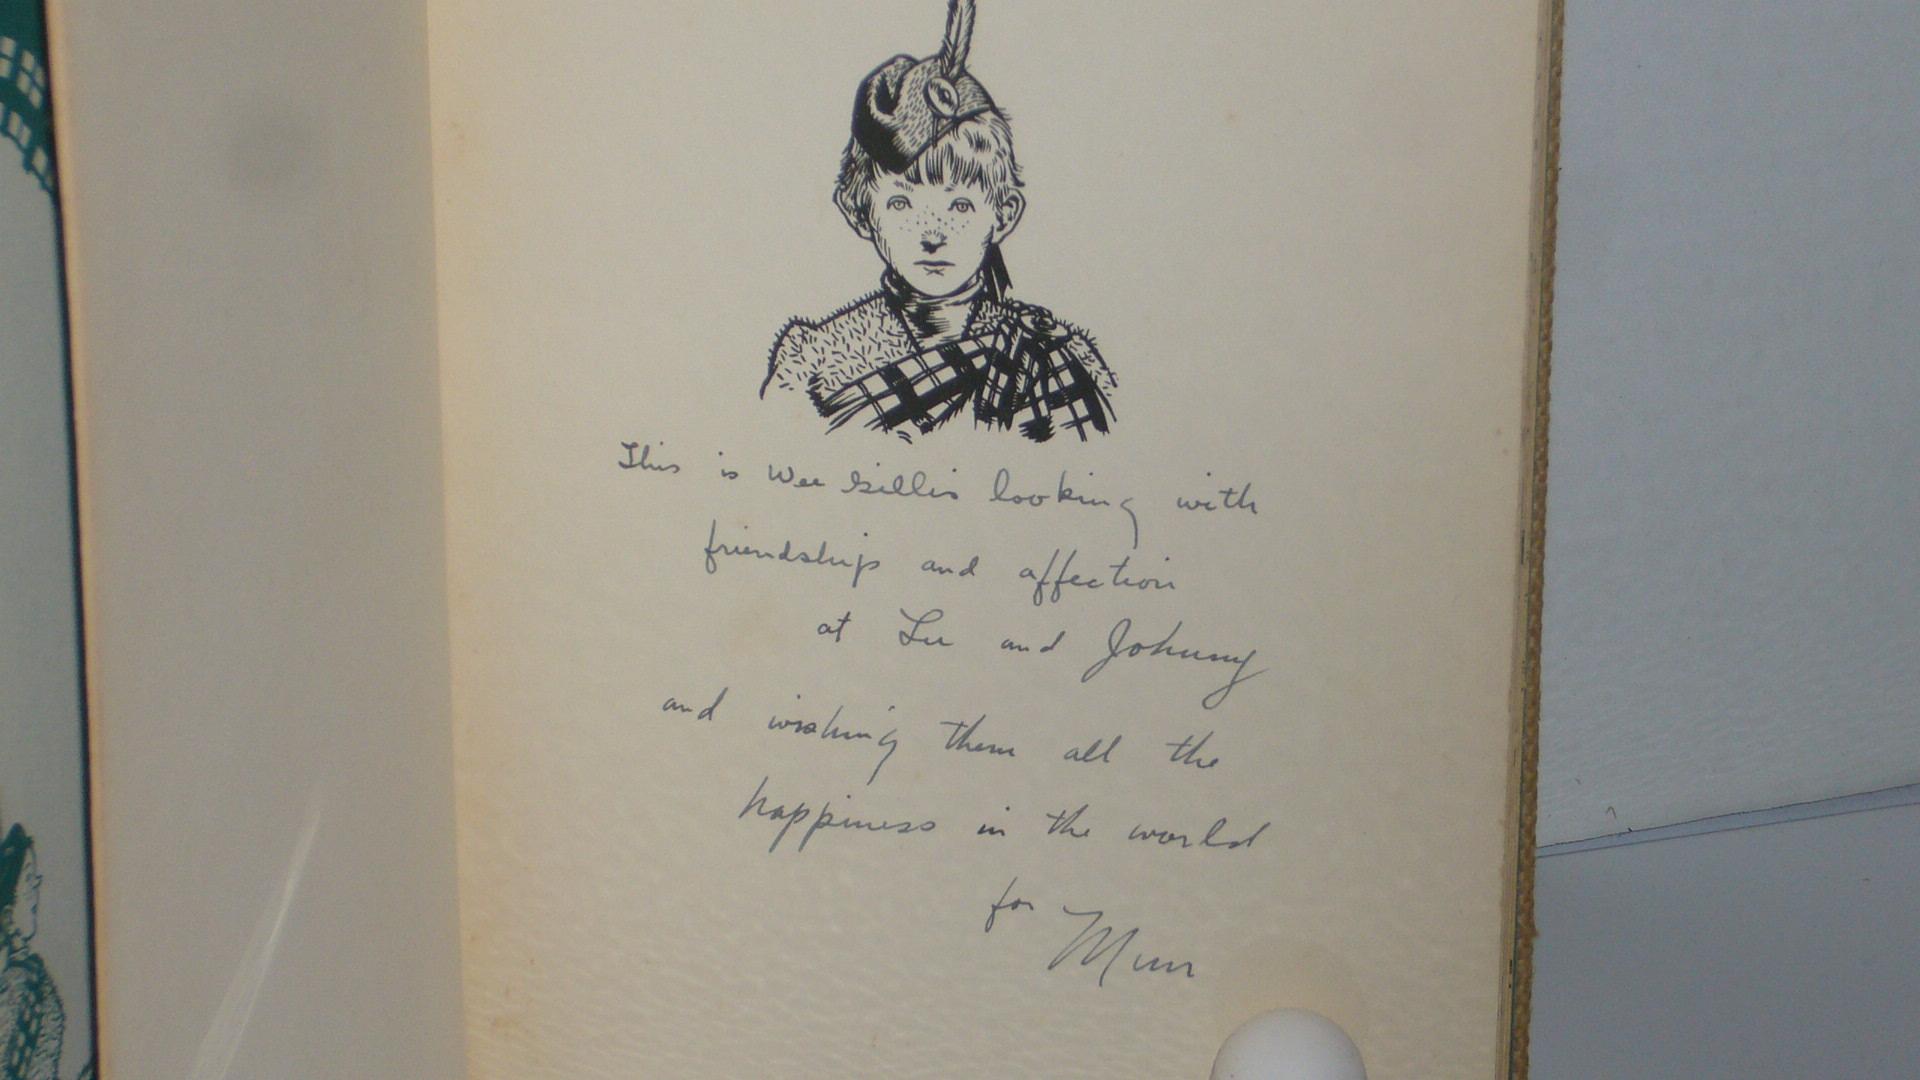 This is Wee Gillis looking with
friendship and affection
at Lu and Johnny
and wishing them all the
happiness in the world
for Mun